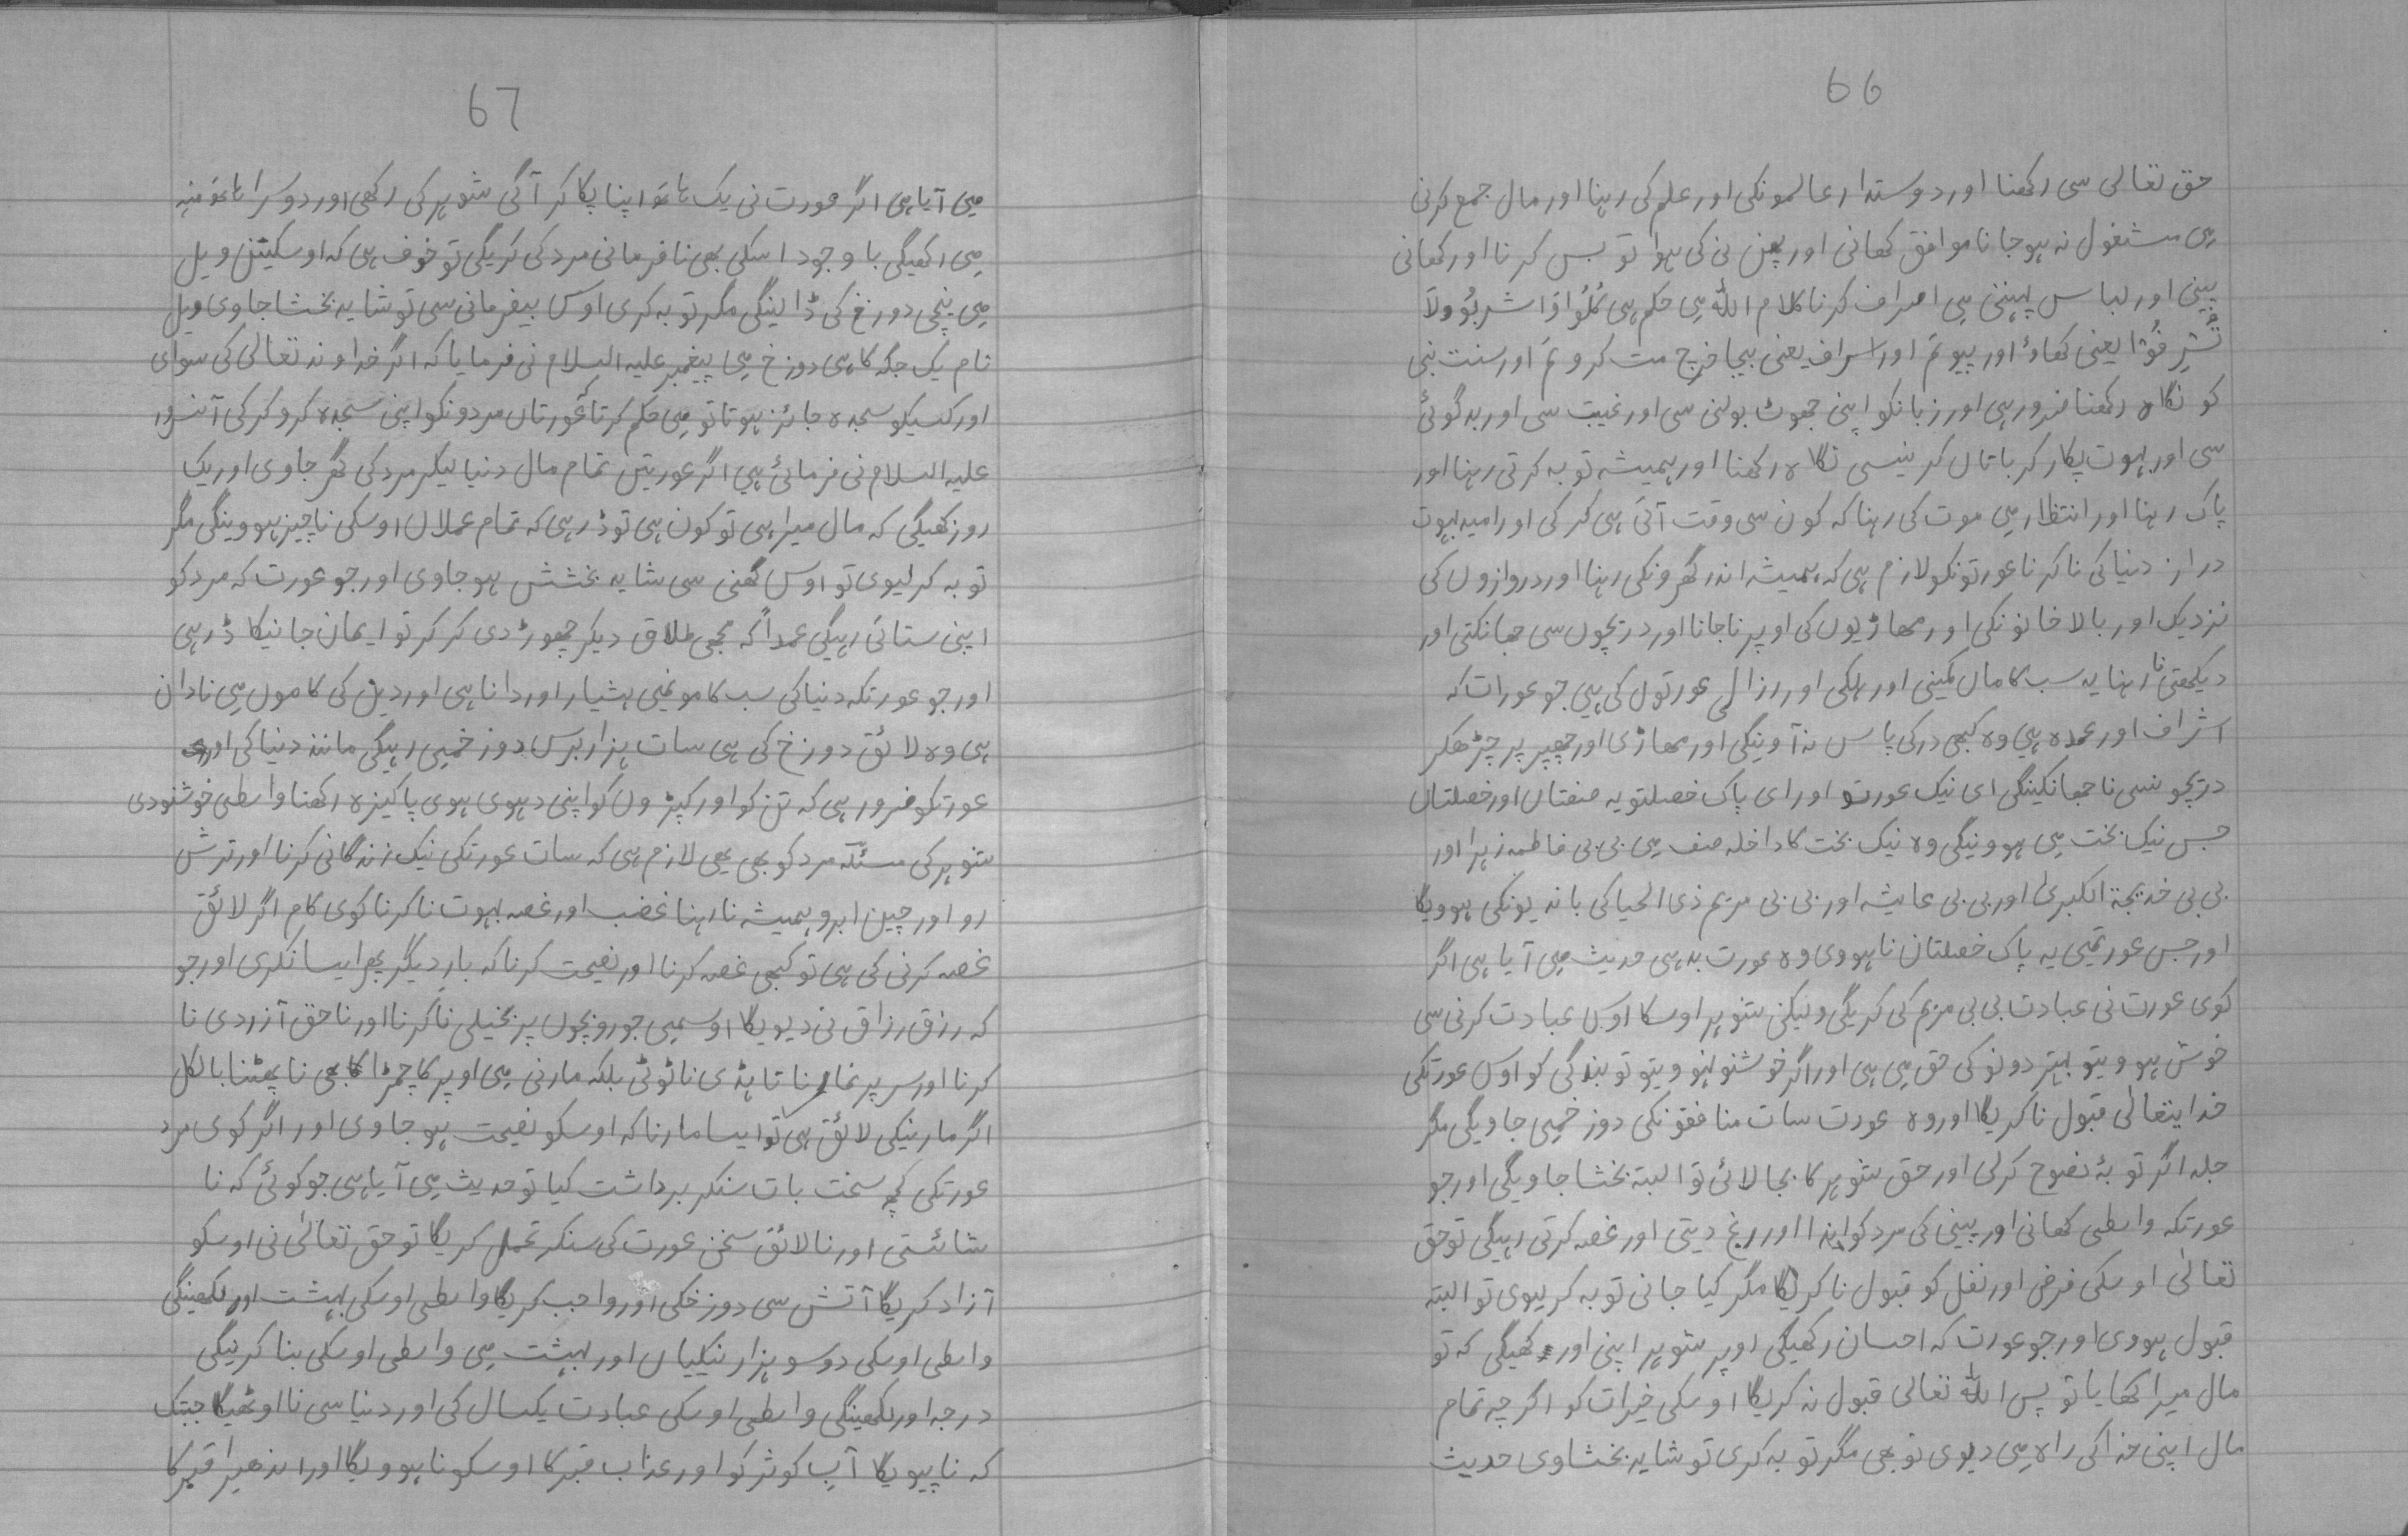 66
حق تعالی سی رکھنا اور دوستدار عالمونکی اور علم کی رہنا اور مال جمع کرنی
می مشغول نہ ہو جانا موافق کھانی اور پہن نی کی ہوا تو بس کرنا اور کھانی
پینی اور لباس پہننی می اصراف کرنا کلام اللہ می حکم ہی کُلُوْا وَاشربُوْ ولَا
تُسْرِفُوْا یعنی کھاوٴ اور پیو تم اور اسراف یعنی بیجا خرچ مت کرو تم اور سنت نبی
کو نگاہ رکھنا ضرور ہی اور زبانکو اپنی جھوٹ بولنی سی اور غیبت سی اور بدگوئی
سی اور بہوت پکار کر باتاں کر نیسی نگاہ رکھنا اور ہمیشہ توبہ کرتی رہنا اور
پاک رہنا اور انتظار می موت کی رہنا کہ کون سی وقت آتی ہی کر کی اور امید بہوت
دراز دنیا کی نا کرنا عورتونکو لازم ہی کہ ہمیشہ اندر گھرونکی رہنا اور دروازوں کی
نزدیک اور بالا خانونکی اور مھاڑیوں کی اوپر نا جانا اور دریچوں سی جھانکتی اور
دیکھتی نا رہنا یہ سب کاماں کمینی اور ہلکی اور رزالی عورتوں کی ہیی جو عورات کہ
اشراف اور عمدہ ہیی وہ کبھی در کی پاس نہ آوینگی اور مھاڑی اور چھپر پر چڑھکر
دریچو نسی نا جھانکینگی ای نیک عورتو اور ای پاک خصلتو یہ صفتاں اور خصلتاں
جس نیک بخت می ہووینگی وہ نیک بخت کا داخلہ صف می بی بی فاطمہ زہرا اور
بی بی خدیجۃ الکبریٰ اور بی بی عایشہ اور بی بی مریم ذی الحیا کی باندیونکی ہوویگا
اور جس عورتمیی یہ پاک خصلتان نا ہووی وہ عورت بد ہی حدیث میی آیا ہی اگر
کوی عورت نی عبادت بی بی مریم کی کریگی ولیکن شوہر اوسکا اوس عبادت کرنی سی
خوش ہوویتو بہتر دونو کی حق می ہی اور اگر خوشنو نہوویتو تو بندگی کو اوس عورتکی
خدایتعالیٰ قبول نا کریگا اور وہ عورت سات منافقونکی دوزخمیی جاویگی مگر
جلہ اگر توبہٴ نصوح کرلی اور حق شوہر کا بجا لائی تو البتہ بخشا جاویگی اور جو
عورتکہ واسطی کھانی اور پینی کی مرد کو ایذا اور رنج دیتی اور غصہ کرتی رہیگی تو حق
تعالیٰ اوسکی فرض اور نفل کو قبول نا کریگا مگر کیا جانی توبہ کر لیوی تو البتہ
قبول ہووی اور جو عورت کہ احسان رکھیگی اوپر شوہر اپنی اور کھیگی کہ تو
مال میرا کھایا تو پس اللہ تعالی قبول نہ کریگا اوسکی خیرات کو اگرچہ تمام
مال اپنی خدا کی راہ می دیوی تو بھی مگر توبہ کری تو شاید بخشاوی حدیث
67
میی آیا ہی اگر عورت نی یک ہاتھ اپنا پکا کر آگی شوہر کی رکھی اور دوسرا ہاتھ منہ
می رکھیگی باوجود اسکی بھی نافرمانی مرد کی کریگی تو خوف ہی کہ اوسکیتئں ویل
می نیچی دوزخ کی ڈالینگی مگر توبہ کری اوس بیفرمانی سی تو شاید بخشا جاوی ویل
نام یک جگہ کا ہی دوزخ میی پیغمبر علیہ السلام نی فرمایا کہ اگر خداوند تعالیٰ کی سوای
اور کسیکو سجدہ جائز ہوتا تو میی حکم کرتا عورتاں مردونکو اپنی سجدہ کرو کر کی آنسور
علیہ السلام نی فرمائی ہیی اگر عوریتں تمام مال دنیا لیکر مرد کی گھر جاوی اور یک
روز کھیگی کہ مال میرا ہی تو کون ہی تو ڈر ہی کہ تمام عملاں اوسکی ناچیز ہووینگی مگر
توبہ کر لیوی تو اوس گھنی سی شاید بخشش ہو جاوی اور جو عورت کہ مرد کو
اپنی ستاتی رہیگی عمداً کہ مجی طلاق دیکر چھوڑ دی کر کر تو ایمان جانیکا ڈر ہی
اور جو عورتکہ دنیا کی سب کامونمیی ہشیار اور دانا ہی اور دین کی کاموں میی نادان
ہی وہ لائق دوزخ کی ہی سات ہزار برس دوزخمیی رہیگی مانند دنیا کی اور
عورتکو ضرور ہی کہ تن کو اور کپڑوں کو اپنی دہوی ہوی پاکیزہ رکھنا واسطی خوشنودی
شوہر کی مسئلہ مرد کو بھی یھی لازم ہی کہ سات عورتکی نیک زندگانی کرنا اور ترش
رو اور چین ابرو ہمیشہ نا رہنا غضب اور غصہ بہوت نا کرنا کوی کام اگر لائق
غصہ کرنی کی ہی تو کبھی غصہ کرنا اور نصیحت کرنا کہ بارِ دیگر پھر ایسا نکری اور جو
کہ رزق رزاق نی دیویگا اوسمیی جورو بچوں پر بخیلی نا کرنا اور ناحق آزردی نا
کرنا اور سر پر نمارنا تا ہڈی نا ٹوٹی بلکہ مارنی میی اوپر کا چمڑا بھی نا پھٹنا بالکل
اگر مارنیکی لائق ہی تو ایسا مارنا کہ اوسکو نصیحت ہو جاوی اور اگر کوی مرد
عورتکی کچہ سخت بات سنکر برداشت کیا تو حدیث می آیا ہی جو کوئی کہ نا
شائستی اور نالائق سخن عورت کی سنکر تحمل کریگا تو حق تعالیٰ نی اوسکو
آزاد کریگا آتش سی دوزخکی اور واجب کریگا واسطی اوسکی بہشت اور لکھینگی
واسطی اوسکی دو سو ہزار نیکیاں اور بہشت میی واسطی اوسکی بنا کرینگی
درجہ اور لکھینگی واسطی اوسکی عبادت یکسال کی اور دنیا سی نا اوٹھیگا جبتک
کہ نا پیویگا آبِ کوثر کو اور عذاب قبر کا اوسکو نا ہوویگا اور اندھیرا قبر کا